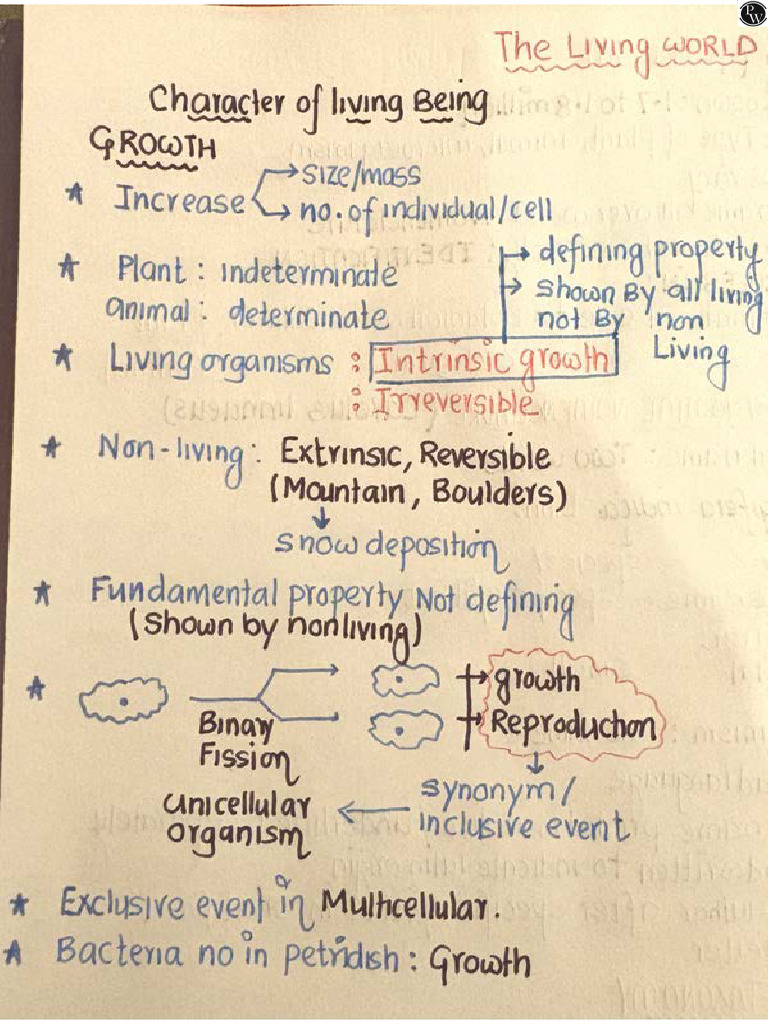 PW
The Living WORLD
Character of living Being
GROWTH
★ Increase → size/mass
→ no. of individual/cell
★ Plant : indeterminate
animal : determinate
→ defining property
→ shown By all living
not By non
Living
★ Living organisms : Intrinsic growth
: Irreversible
★ Non-living : Extrinsic, Reversible
(Mountain, Boulders)
↓
snow deposition
★ Fundamental property Not defining
(Shown by nonliving)
★ Binary
Fission
→ growth
→ Reproduction
↓
synonym/
inclusive event
←
unicellular
organism
★ Exclusive event in Multicellular.
★ Bacteria no in petridish : Growth